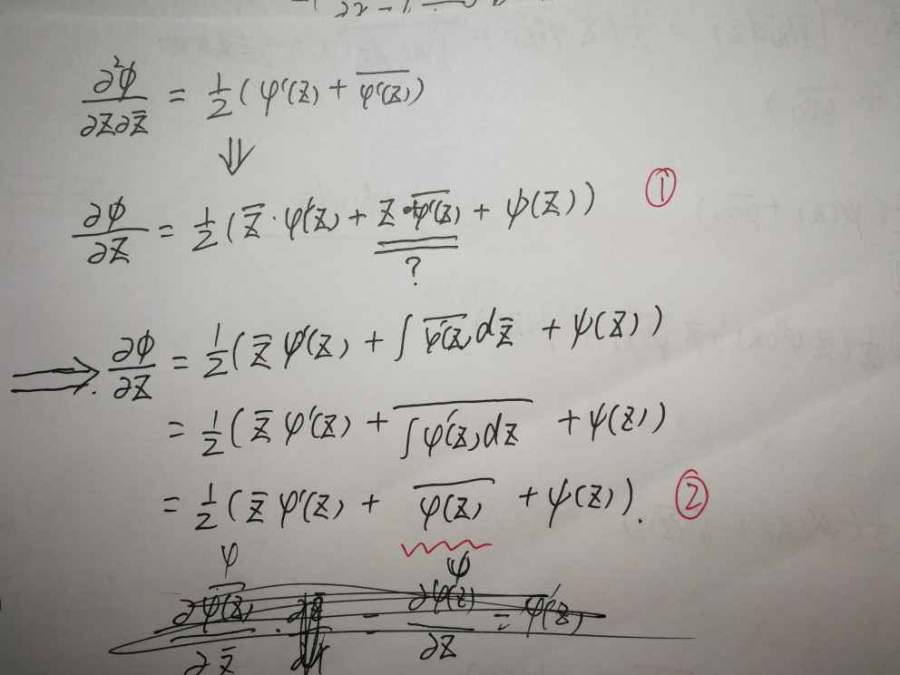 ∂²ϕ/∂z∂z̄ = 1/2 (φ'(z) + \overline{φ'(z)})
⇓
∂ϕ/∂z = 1/2 (z̄·φ'(z) + z·\overline{φ'(z)} + ψ(z)) ①
?
⟹ ∂ϕ/∂z = 1/2 (z̄ φ'(z) + ∫ \overline{φ'(z)} dz̄ + ψ(z))
= 1/2 (z̄ φ'(z) + \overline{∫ φ'(z) dz} + ψ(z))
= 1/2 (z̄ φ'(z) + \overline{φ(z)} + ψ(z)). ②